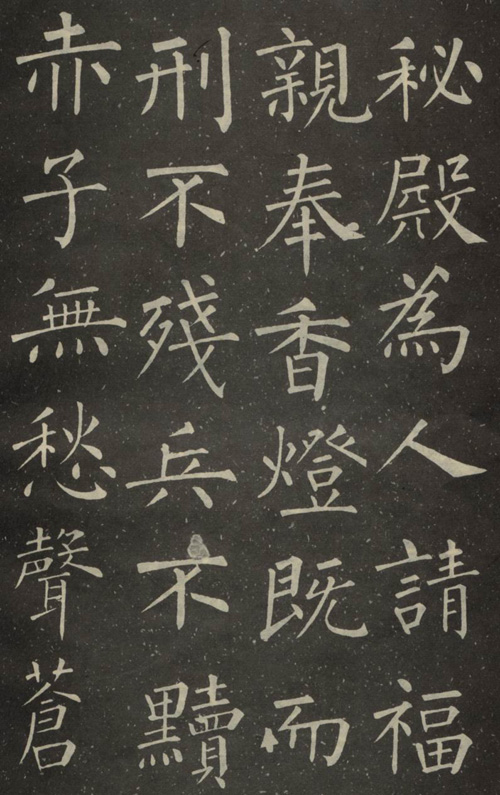 秘殿為人請福
親奉香燈既而
刑不殘兵不黷
赤子無愁聲蒼